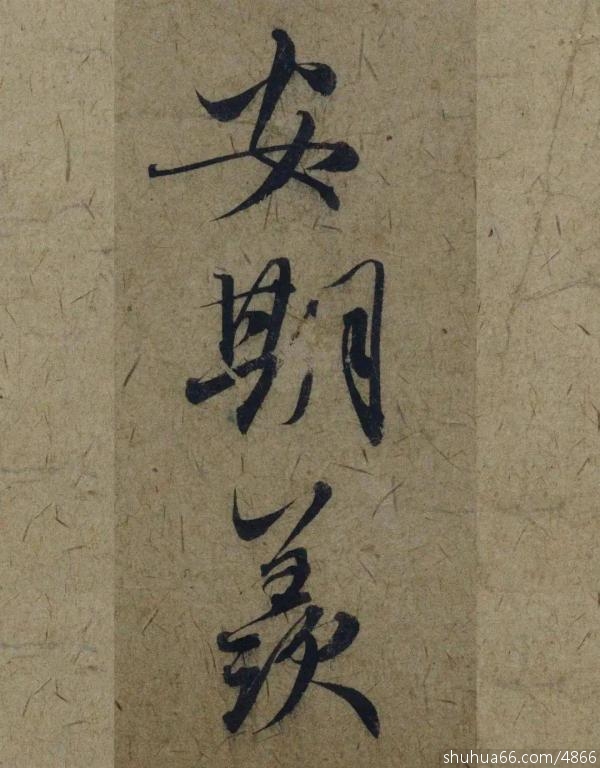 安期羨
shuhua66.com/4866